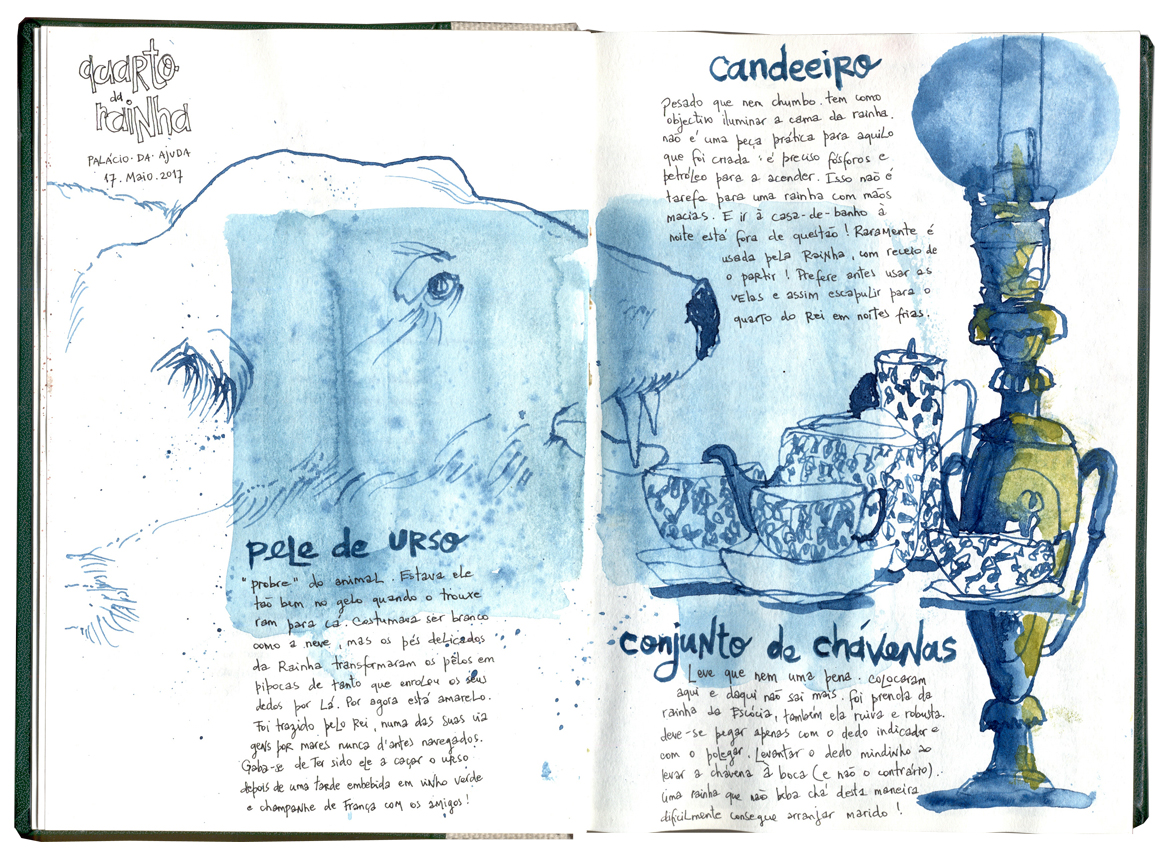 quarto
da
rainha
PALÁCIO·DA·AJUDA
17. Maio. 2017
pele de urso
"probre" do animal. Estava ele
tão bem no gelo quando o trouxe
ram para cá. Costumava ser branco
como a neve, mas os pés delicados
da Rainha transformaram os pêlos em
pipocas de tanto que enrolou os seus
dedos por lá. Por agora está amarelo.
Foi trazido pelo Rei, numa das suas via
gens por mares nunca d'antes navegados.
Gaba-se de ter sido ele a caçar o urso
depois de uma tarde embebida em vinho verde
e champanhe de França com os amigos!
candeeiro
Pesado que nem chumbo. tem como
objectivo iluminar a cama da rainha.
não é uma peça prática para aquilo
que foi criada: é preciso fósforos e
petróleo para a acender. Isso não é
tarefa para uma rainha com mãos
macias. E ir à casa-de-banho à
noite está fora de questão! Raramente é
usada pela Rainha, com receio de
o partir! Prefere antes usar as
velas e assim escapulir para o
quarto do Rei em noites frias.
conjunto de chávenas
Leve que nem uma pena. colocaram
aqui e daqui não sai mais. foi prenda da
rainha da Escócia, também ela ruiva e robusta.
deve-se pegar apenas com o dedo indicador e
com o polegar. Levantar o dedo mindinho ao
levar a chávena à boca (e não o contrário).
Uma rainha que não beba chá desta maneira
dificilmente consegue arranjar marido!